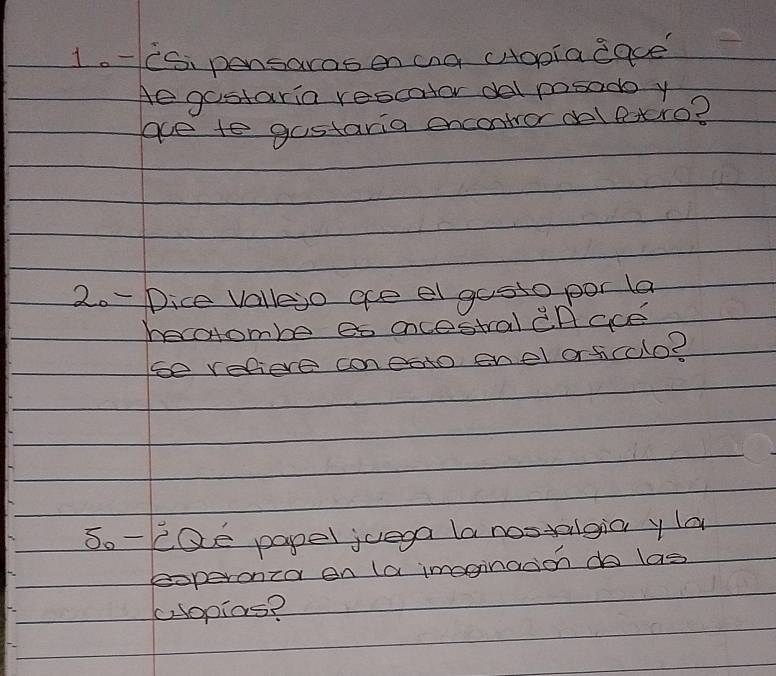 1.- ¿Si pensaras en una utopía ¿qué
te gustaría rescatar del pasado y
que te gustaría encontrar del futuro?
2.- Dice Vallejo que el gusto por la
hecatombe es ancestral ¿A qué
se refiere con esto en el artículo?
5.- ¿Qué papel juega la nostalgia y la
esperanza en la imaginación de las
utopías?